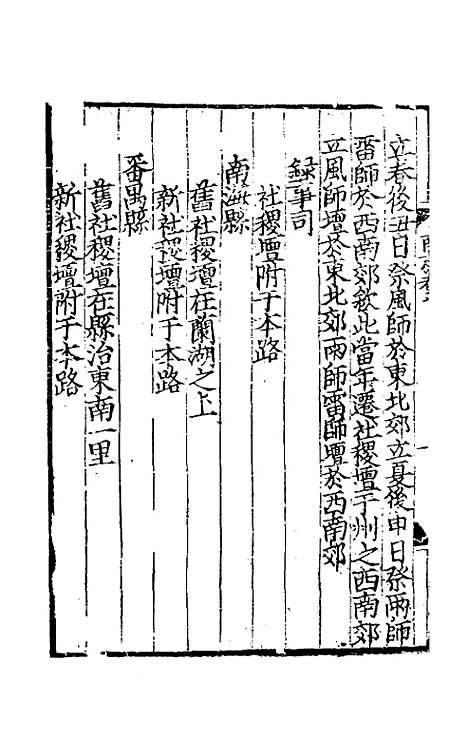 立春後丑日祭風師於東北郊立夏後申日祭雨師
雷師於西南郊敘此當年遷社稷壇于州之西南郊
立風師壇於東北郊雨師雷師壇於西南郊
録事司
社稷壇附于本路
南海縣
舊社稷壇在蘭湖之上
新社稷壇附于本路
番禺縣
舊社稷壇在縣治東南一里
新社稷壇附于本路